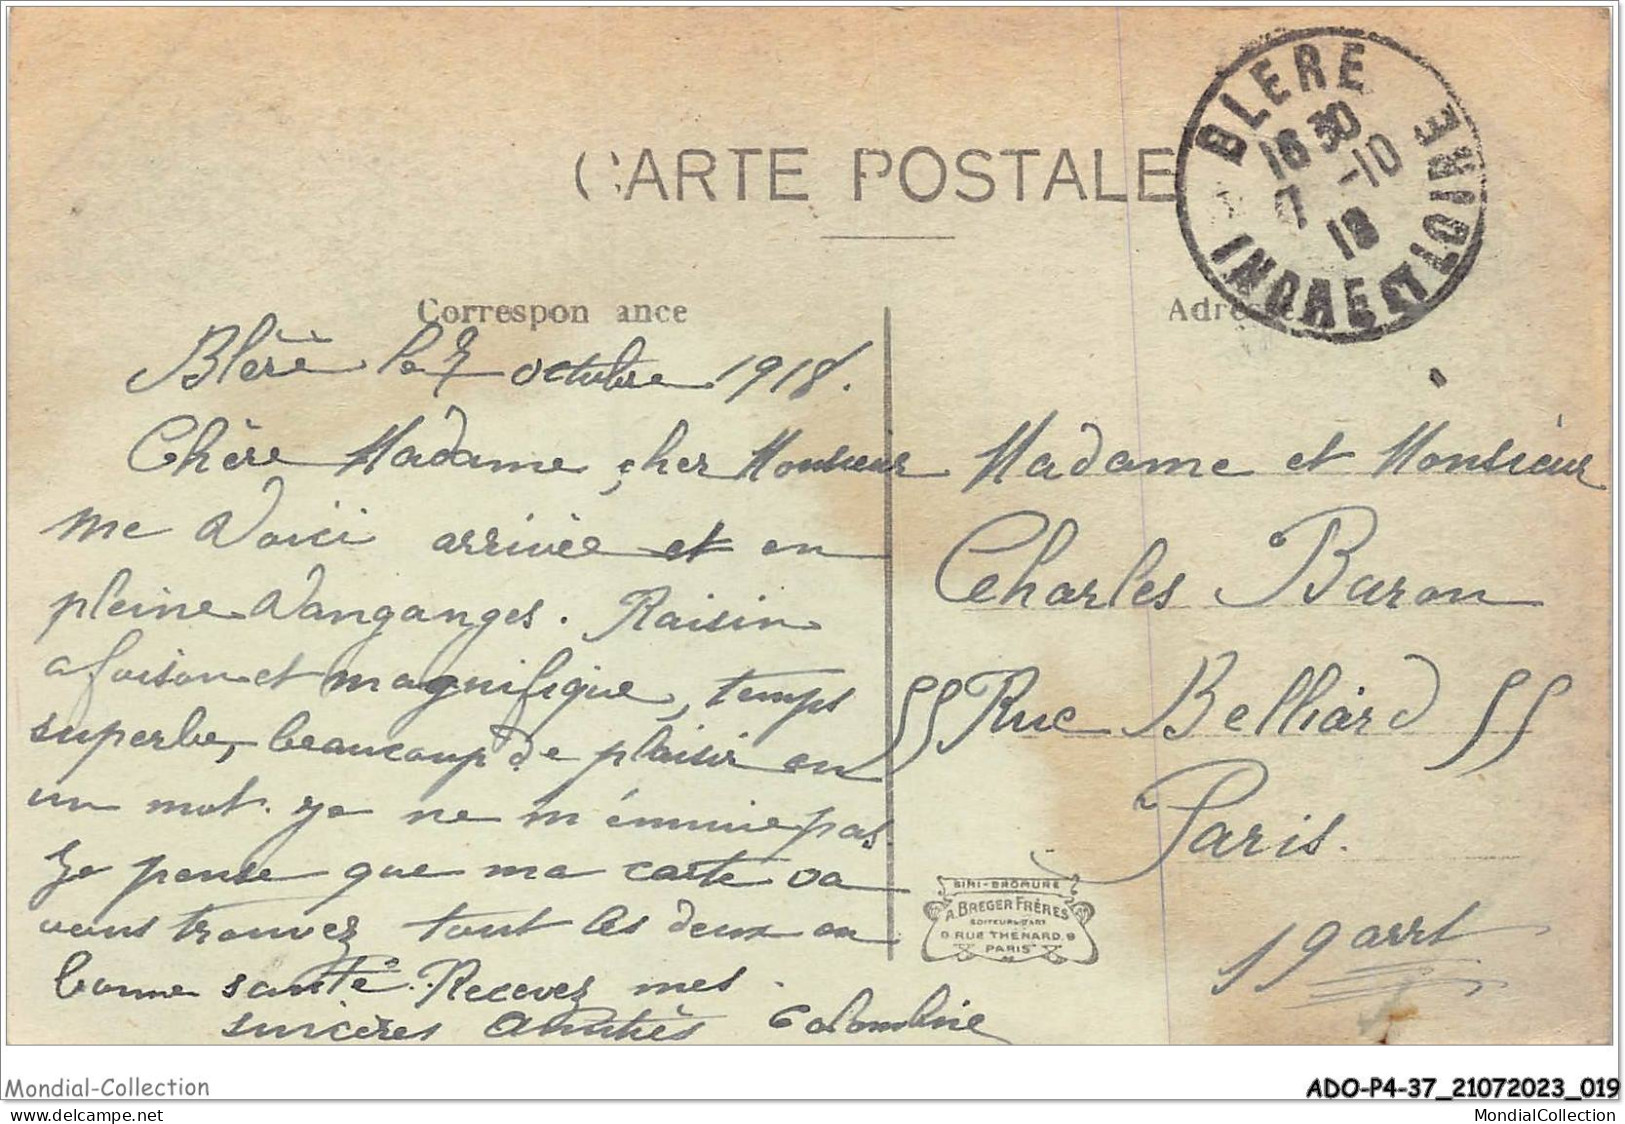 CARTE POSTALE
BLERE
16 30
7 -10
18
INDRE ET LOIRE
Correspon ance
Adresse
Bléré le 7 octobre 1918.
Chère Madame, cher Monsieur
me voici arrivée et en
pleine vanganges. Raisin
a foison et magnifique, temps
superbe, beaucoup de plaisir en
un mot. je ne m'ennuie pas.
Je pense que ma carte va
vous trouvez tout les deux en
bonne santé. Recevez mes
sincères amitiés Colombine
Madame et Monsieur
Charles Baron
55 Rue Belliard 55
Paris.
19 arrt
SIMI-BROMURE
A. BREGER FRÈRES
EDITEURS D'ART
9 RUE THENARD, 9
PARIS
Mondial-Collection
ADO-P4-37_21072023_019
MondialCollection